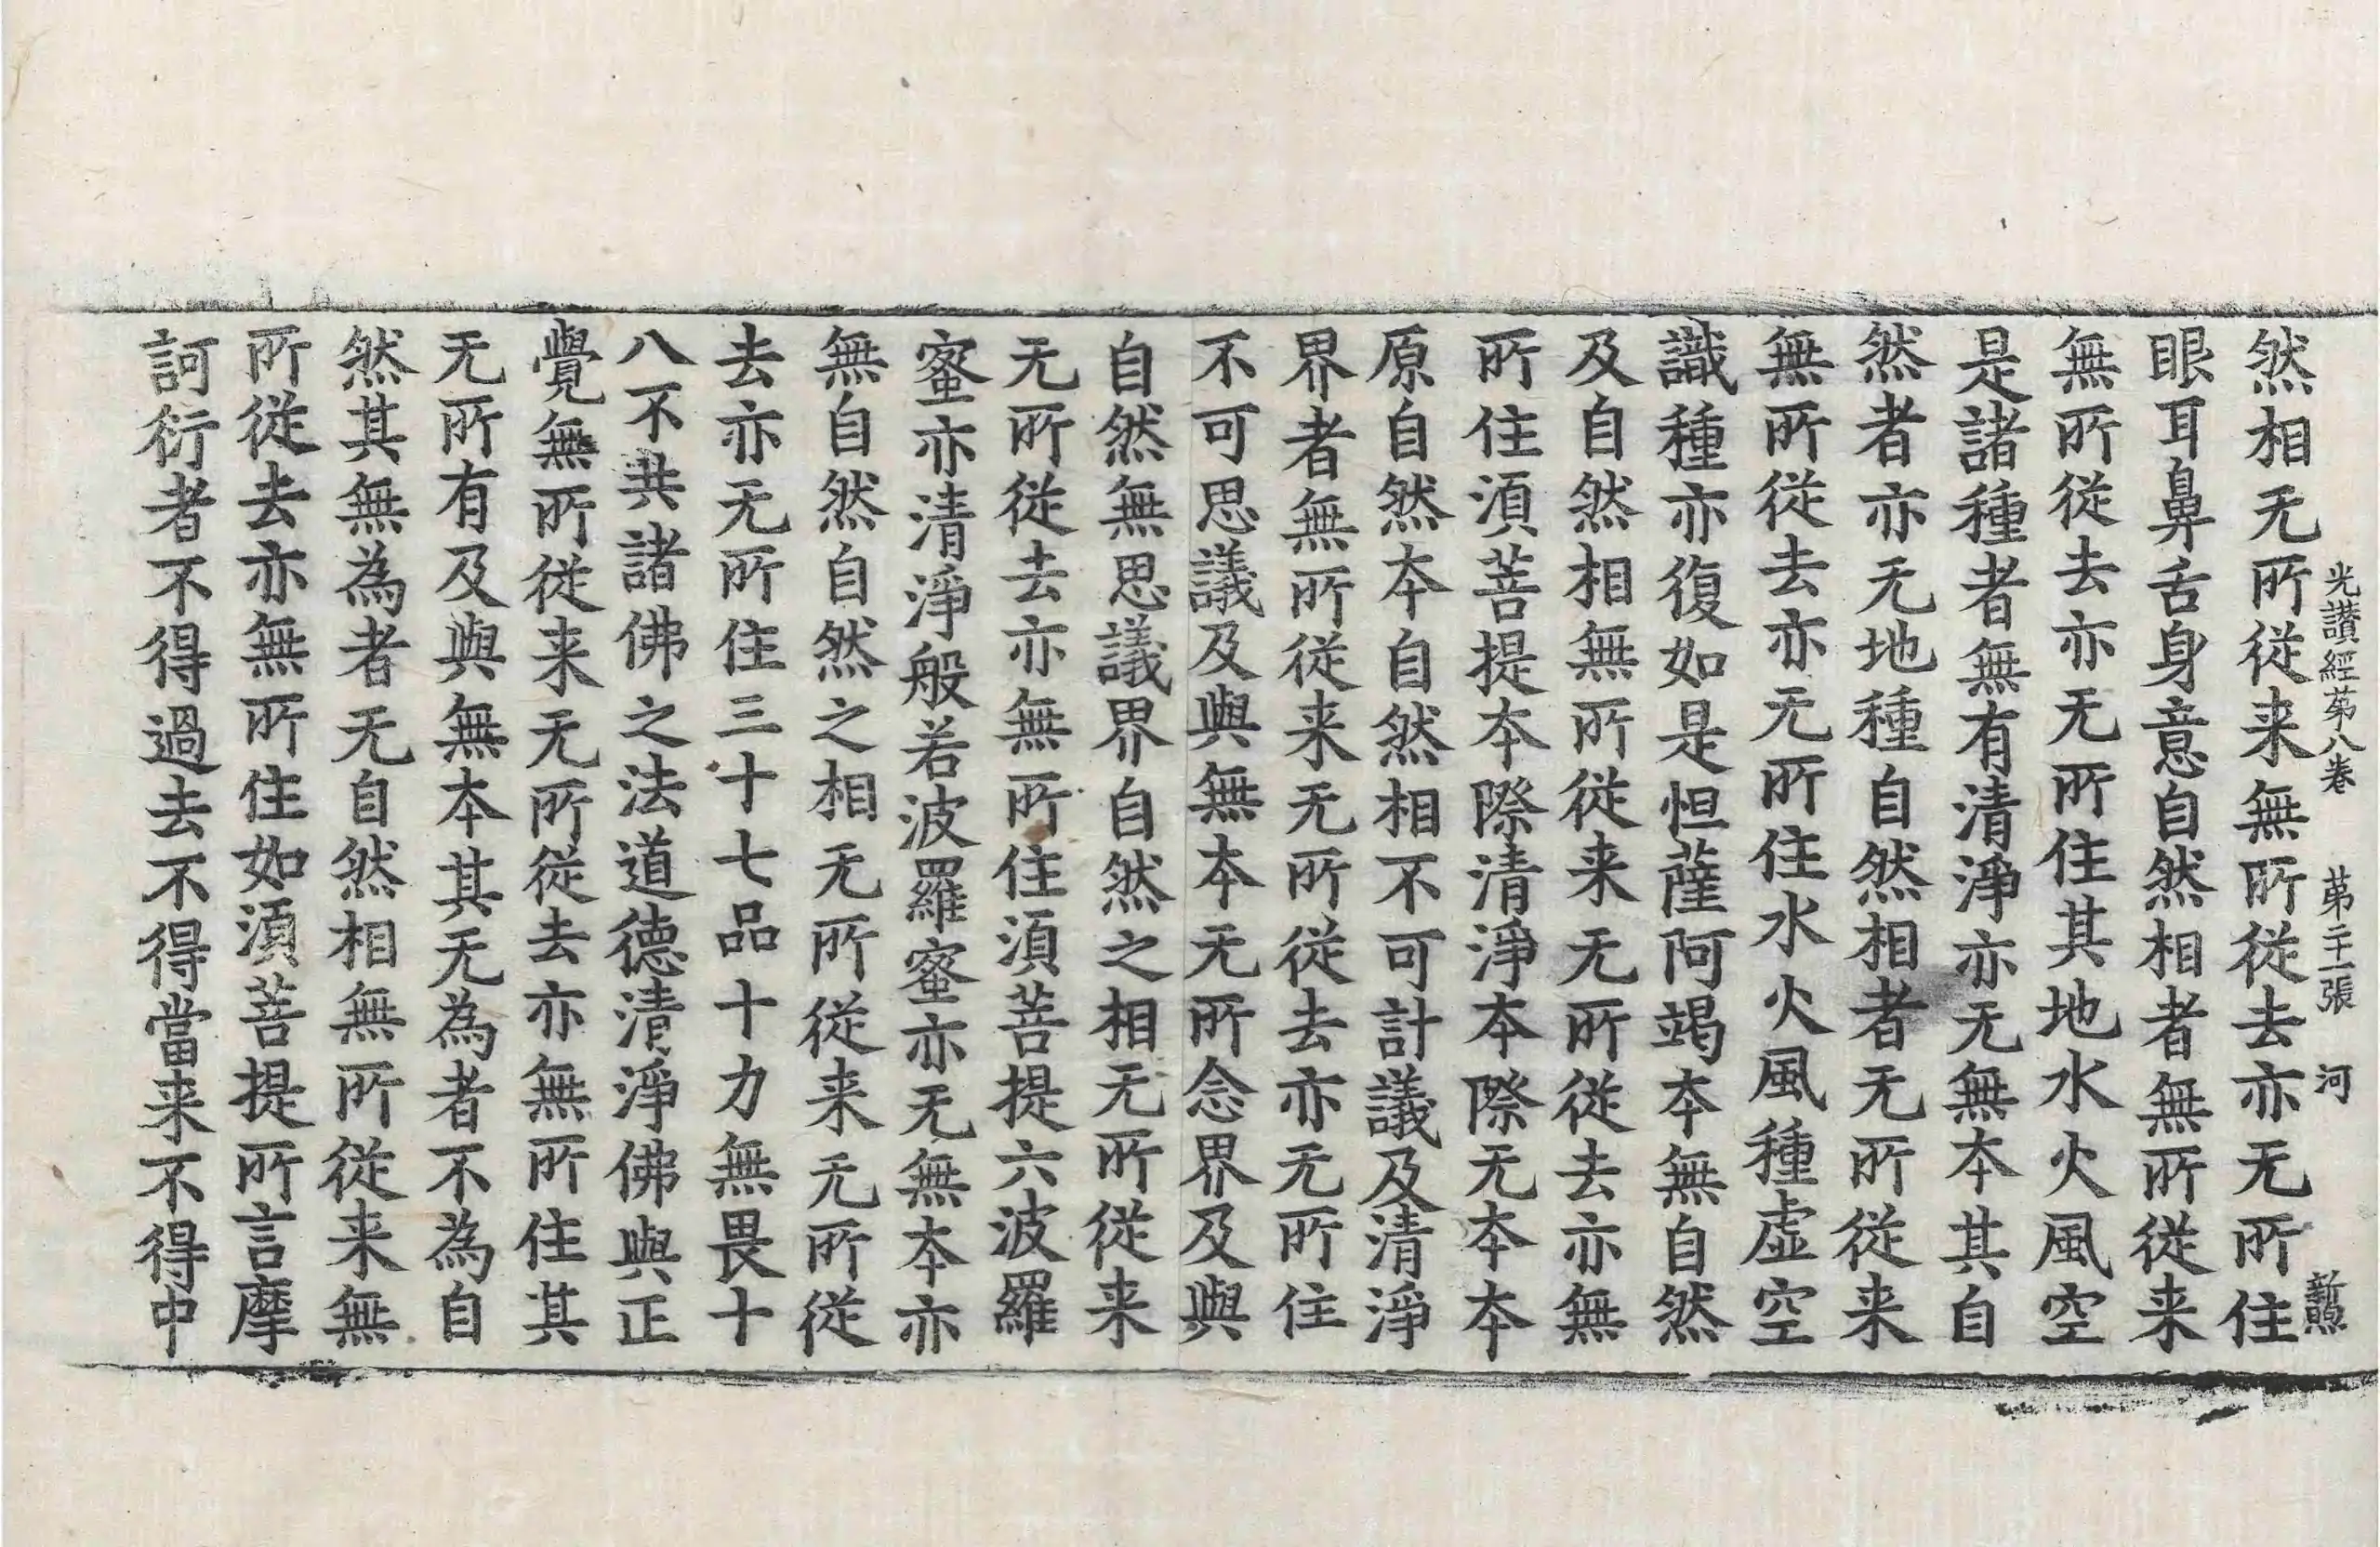 光讃經苐八卷　苐二十一張　河
然相无所從来無所從去亦无所住
眼耳鼻舌身意自然相者無所從来
無所從去亦无所住其地水火風空
是諸種者無有清淨亦无無本其自
然者亦无地種自然相者无所從来
無所從去亦无所住水火風種虛空
識種亦復如是怛薩阿竭本無自然
及自然相無所從来无所從去亦無
所住湏菩提本際清淨本際无本本
原自然本自然相不可計議及清淨
界者無所從来无所從去亦无所住
不可思議及與無本无所念界及與
自然無思議界自然之相无所從来
无所從去亦無所住湏菩提六波羅
蜜亦清淨般若波羅蜜亦无無本亦
無自然自然之相无所從来无所從
去亦无所住三十七品十力無畏十
八不共諸佛之法道德清淨佛與正
覺無所從来无所從去亦無所住其
无所有及與無本其无為者不為自
然其無為者无自然相無所從来無
所從去亦無所住如湏菩提所言摩
訶衍者不得過去不得當来不得中